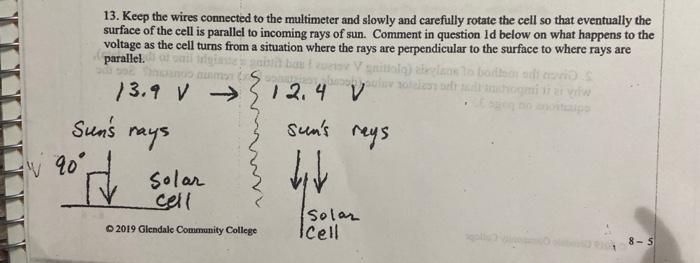 13. Keep the wires connected to the multimeter and slowly and carefully rotate the cell so that eventually the
surface of the cell is parallel to incoming rays of sun. Comment in question 1d below on what happens to the
voltage as the cell turns from a situation where the rays are perpendicular to the surface to where rays are
parallel.
13.9 V → 12.4 V
Sun's rays
sun's rays
90°
solar
cell
solar
cell
© 2019 Glendale Community College
8 - 5